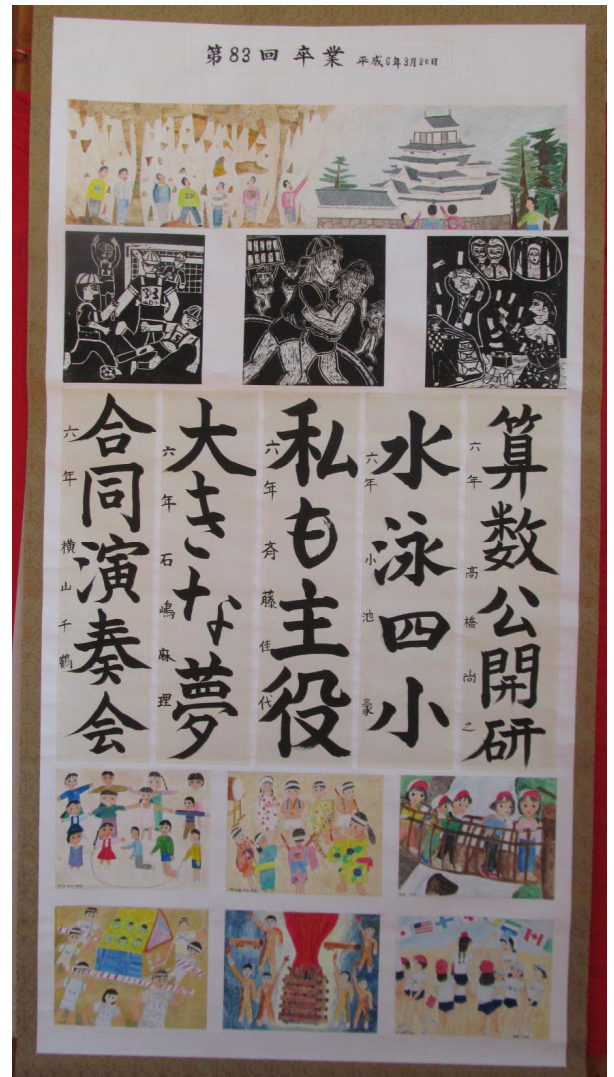 第83回 卒業 平成6年3月20日
算数公開研
六年 高橋尚之
水泳四小
六年 小池豪
私も主役
六年 斉藤佳代
大きな夢
六年 石嶋麻理
合同演奏会
六年 横山千鶴